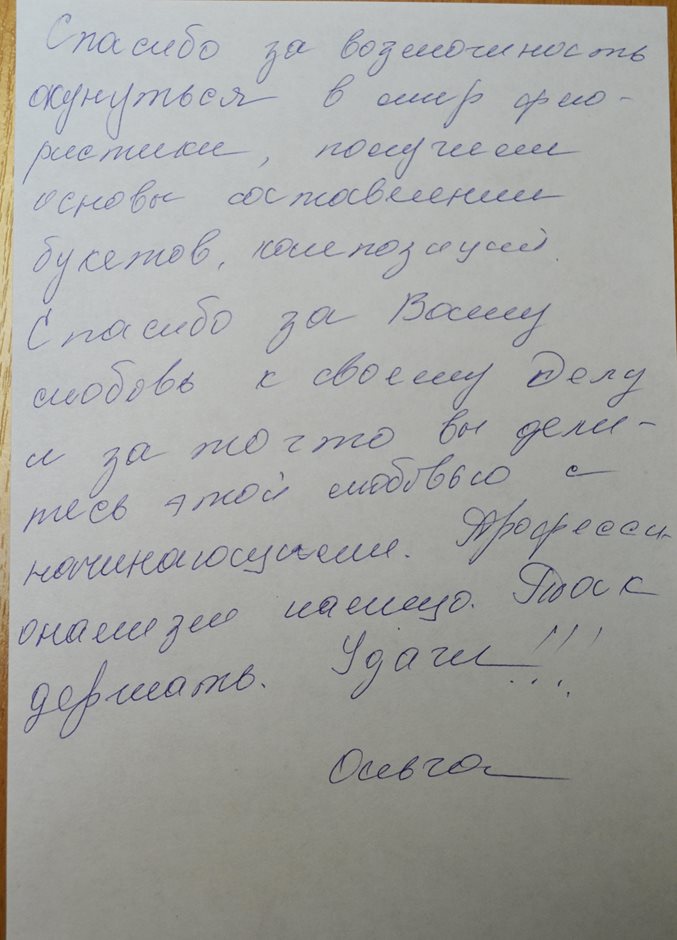 Спасибо за возможность
окунуться в мир фло-
ристики, получили
основы составлении
букетов, композиций.
Спасибо за Вашу
любовь к своему Делу
и за то что вы дели-
тесь этой любовью с
начинающими. Професси-
онализм налицо. Так
держать. Удачи!!!
Ольга